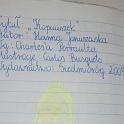 tytuł: "Kopciuszek"
autor: Hanna Januszewska
wg. Charles'a Perraulta
ilustracje Carlos Busquets
Wydawnictwo: Siedmioróg 2007